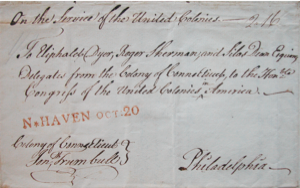 On the Service of the United Colonies — 2.16
To Eliphalet Dyer, Roger Sherman, and Silas Dean Esquires
Delegates from the Colony of Connecticut, to the Honble
Congress of the United Colonies in America —
N*HAVEN OCT. 20
Colony of Connecticut
Jon Trumbull
Philadelphia